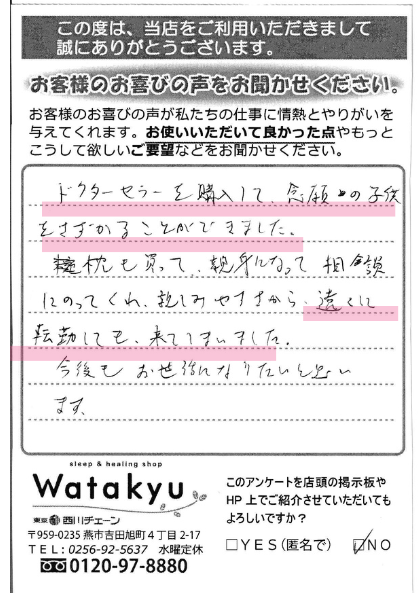 この度は、当店をご利用いただきまして
誠にありがとうございます。
お客様のお喜びの声をお聞かせください。
お客様のお喜びの声が私たちの仕事に情熱とやりがいを
与えてくれます。お使いいただいて良かった点やもっと
こうして欲しいご要望などをお聞かせください。
ドクターセラーを購入して、念願の子供
をさずかることができました。
枕も買って、親身になって相談
にのってくれ、親しみやすさから、遠くに
転勤しても、来てしまいました。
今後もお世話になりたいと思い
ます。
sleep & healing shop
Watakyu
東京 西川チェーン
〒959-0235 燕市吉田旭町4丁目2-17
TEL:0256-92-5637 水曜定休
0120-97-8880
このアンケートを店頭の掲示板や
HP上でご紹介させていただいても
よろしいですか?
□YES(匿名で) ☑NO